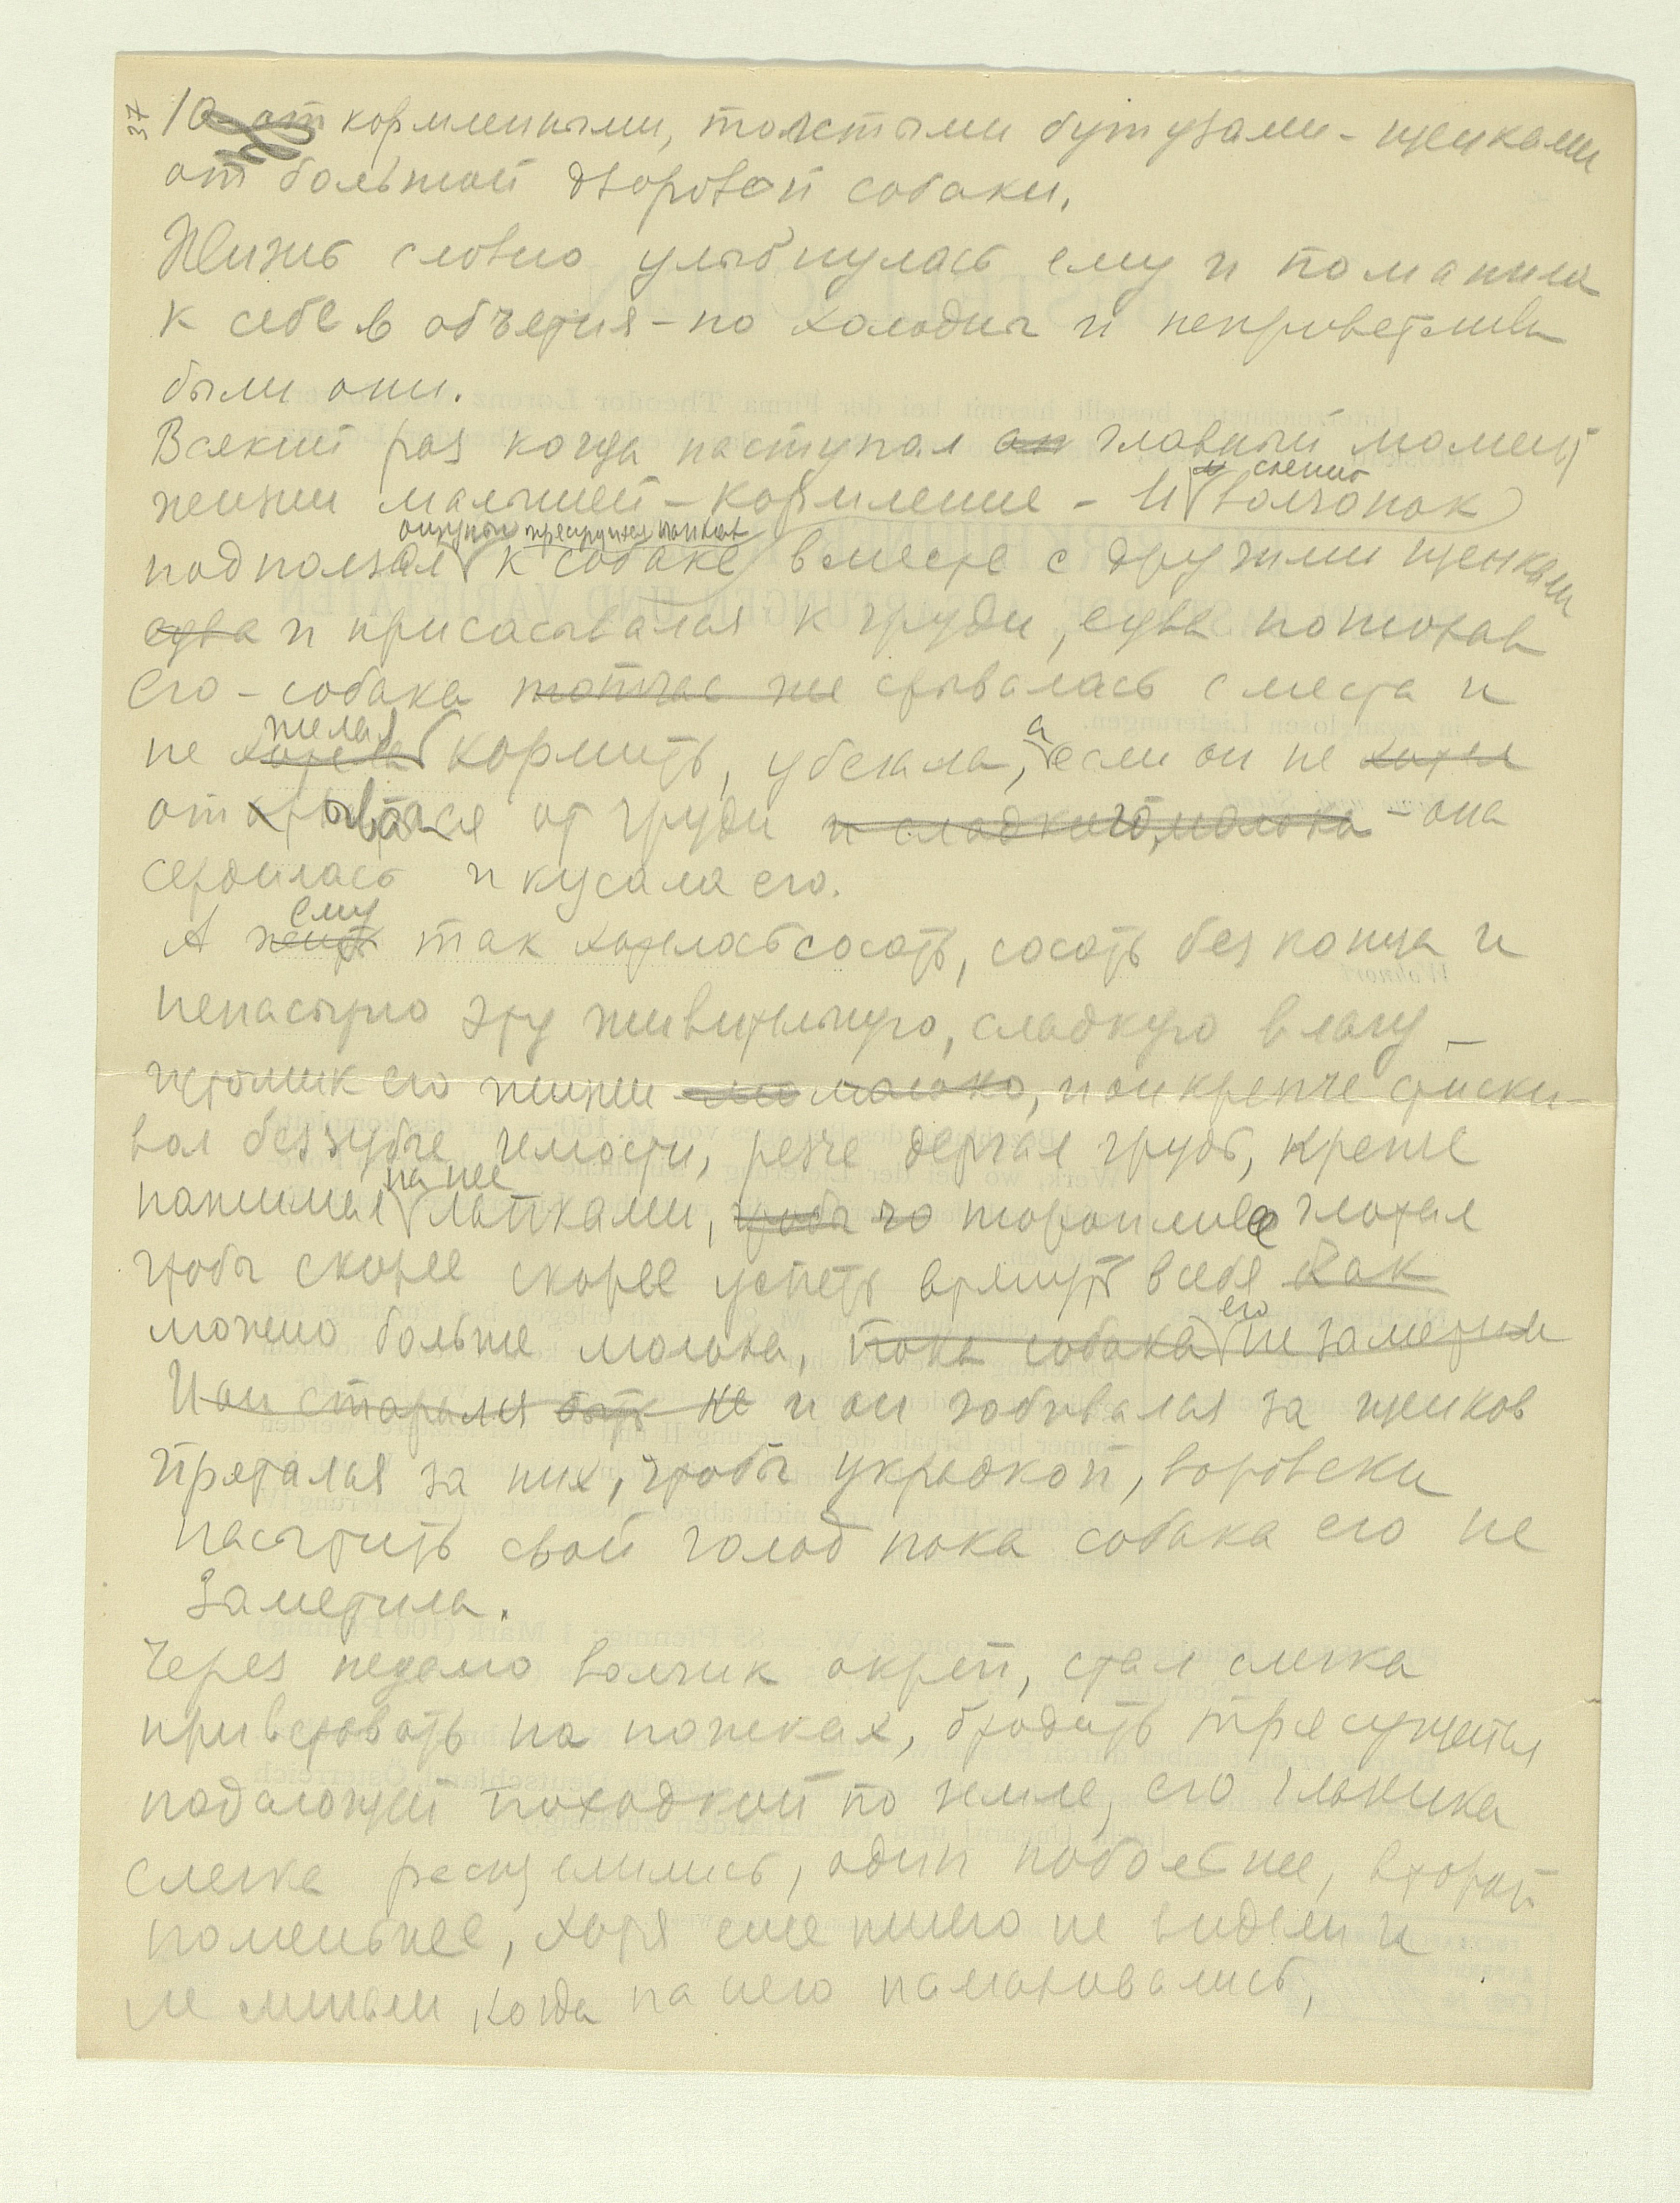 37
10 от кормленными, толстыми бутузами - щенками
от большой дворовой собаки.
Жизнь словно улыбнулась ему и поманила
к себе в объетия - но холодны и неприветливы
были они.
Всякий раз когда наступал он главный момент
жизни малышей - кормление - И слепит волчонок
подползал к собаке вместе с другими щенками
едва и присасывался к груди, едва
его - собака тотчас же срывалась с места и
не хотела желая кормить, убегала, а если он не хотел
отрываться от груди и сладкого молока - она
сердилась и кусала его.
А ему так хотелось сосать, сосать без конца и
ненасытно эту живительную, сладкую влагу -
источник его жизни молоко, и он крепче стиски-
вал беззубые челюсти, резче дергал грудь, крепче
нажимал на нее лапками, чтобы торопливее глотал
чтобы скорее скорее успеть втянуть в себя как
можно больше молока, пока собака его не заметила
И он старался быть не и он забивался за щенков
прятался за них, чтобы украдкой, воровски
насытить свой голод пока собака его не
заметила.
Через неделю волчик окреп, стал слегка
привставать на ножках, бродить трясущейся
падающей походкой по земле, его глазика
слегка расщелились, один поболенее, второй
поменьнее, хотя еще ничего не видели и
не мигали, когда на него намахивались,